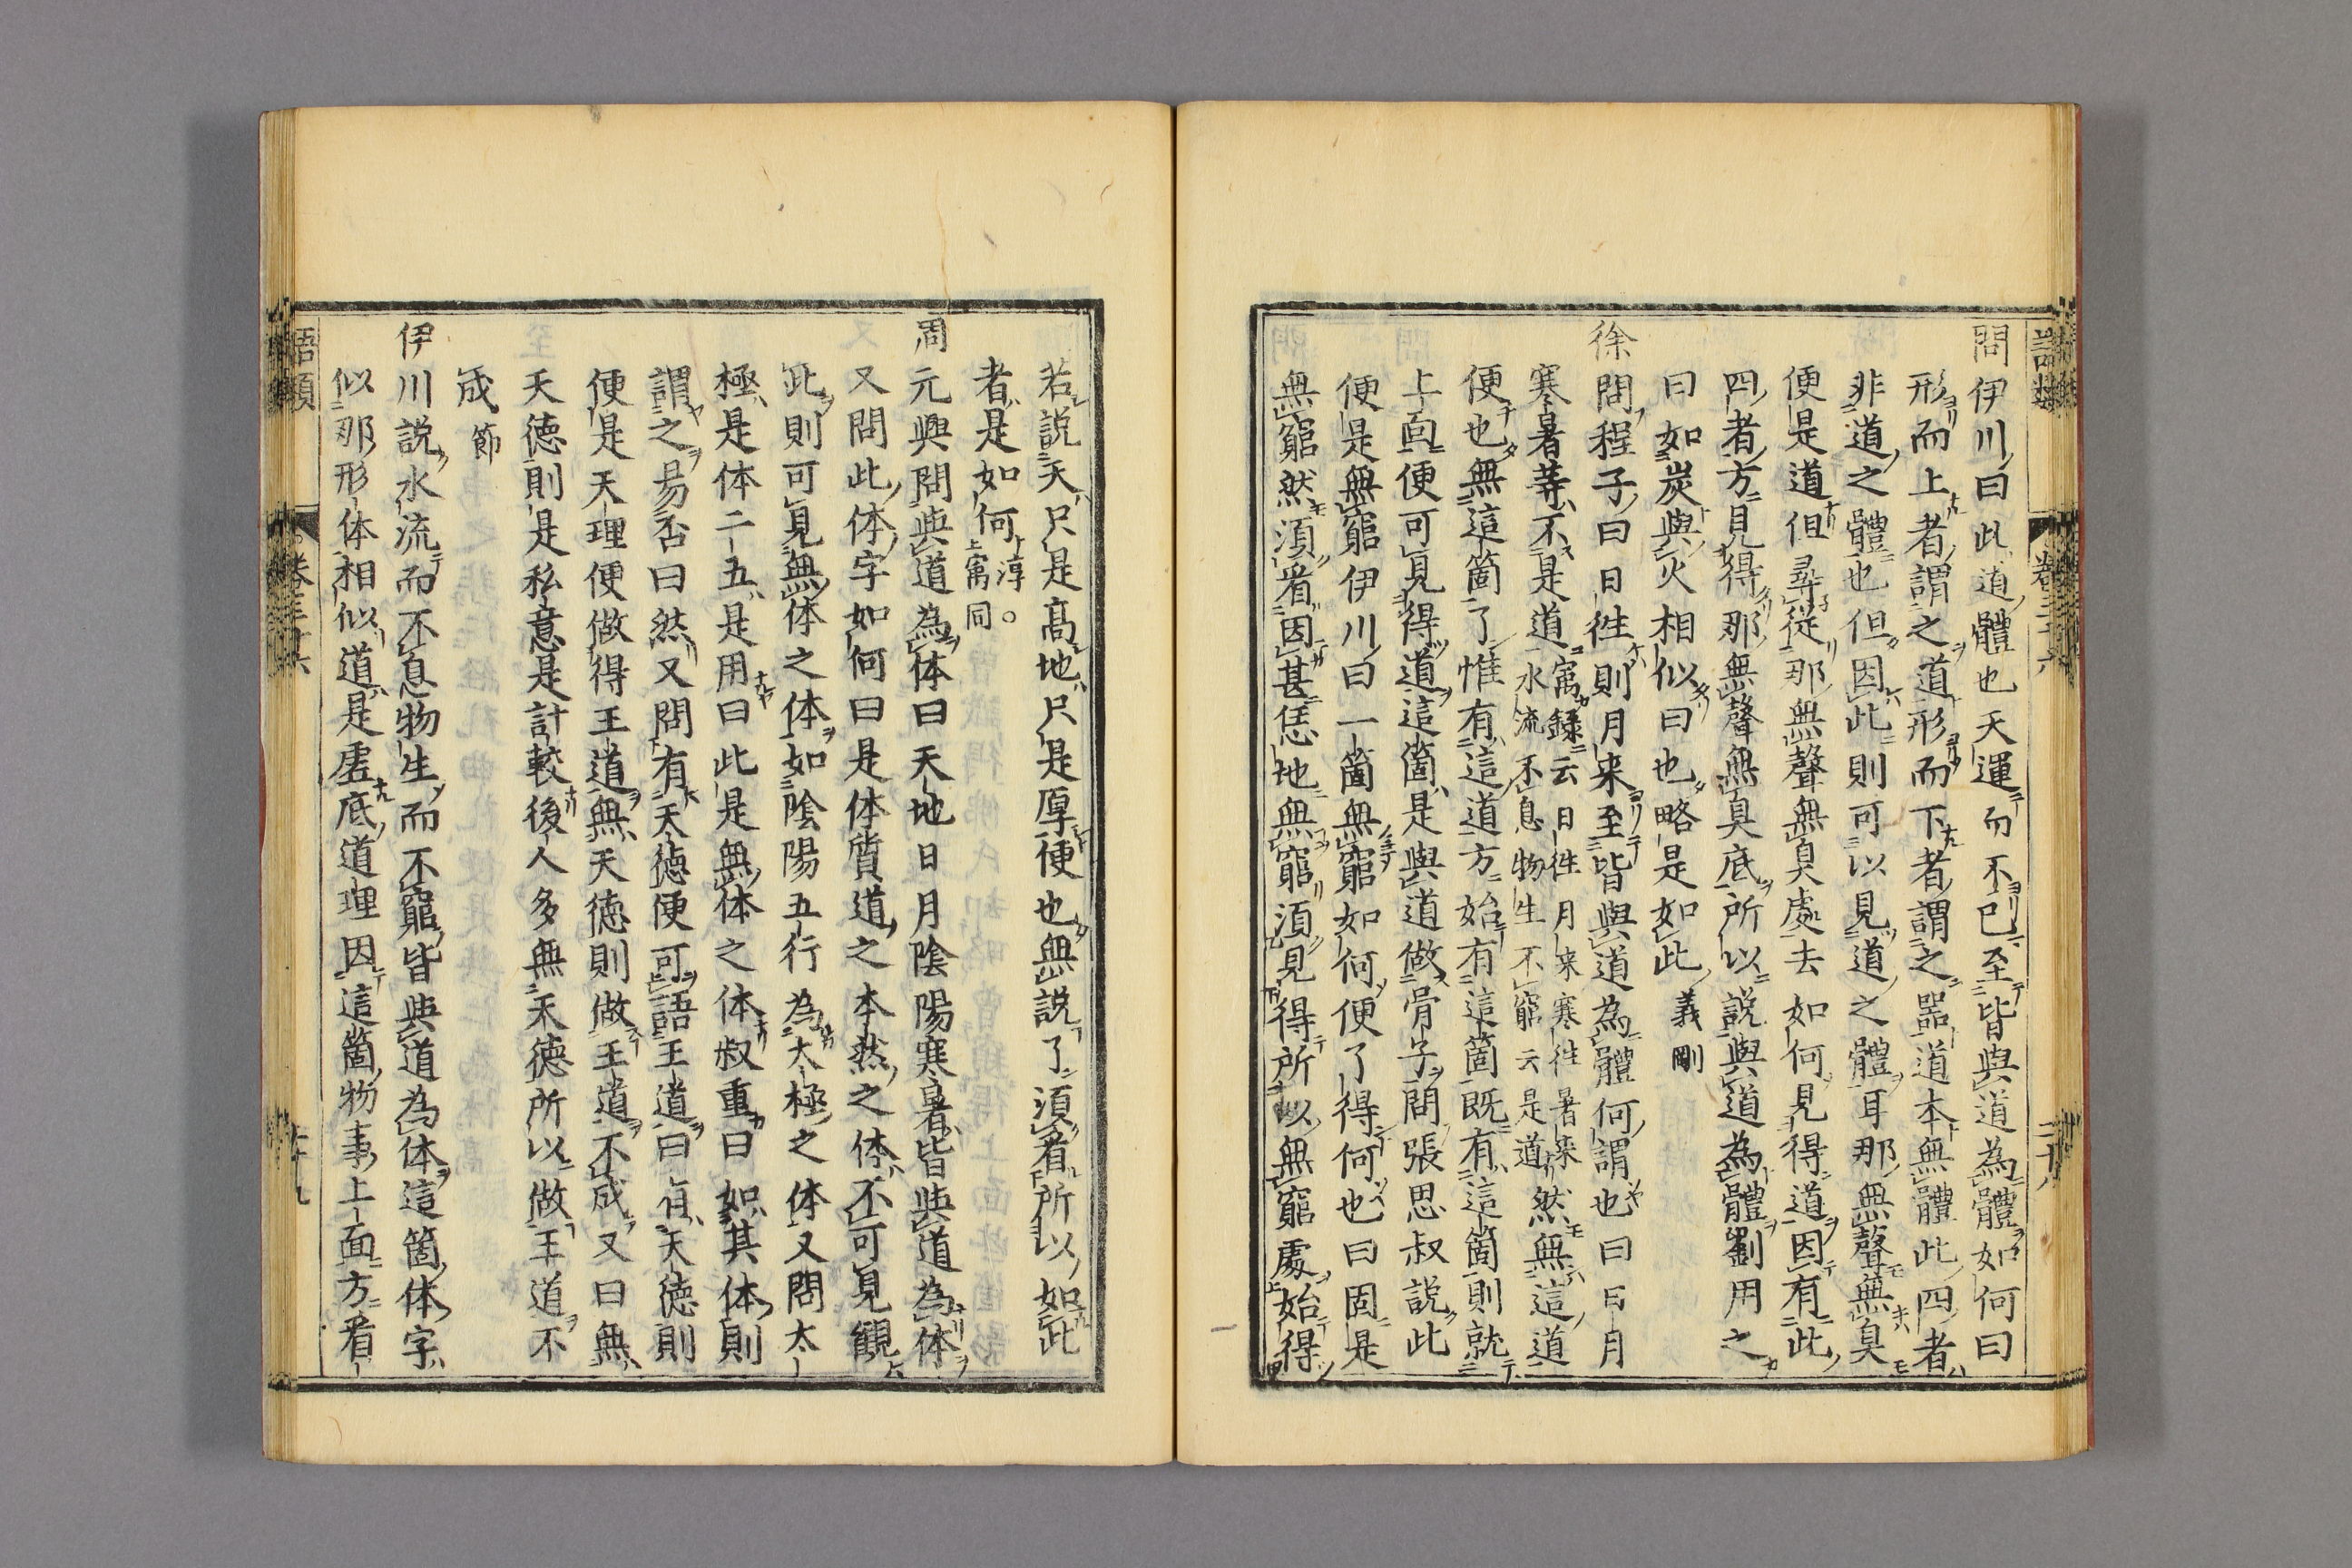 語類 卷三十六 二十八
問伊川曰此道體也天運而不已至皆與道為體如何曰
形而上者謂之道形而下者謂之器道本無體此四者
非道之體也但因此則可以見道之體耳那無聲無臭
便是道但尋從那無聲無臭處去如何見得道因有此
四者方見得那無聲無臭底所以說與道為體劉用之
曰如炭與火相似曰也略是如此義剛
徐問程子曰日徃則月来至皆與道為體何謂也曰日月
寒暑等不是道寓録云日徃月来寒徃暑来水流不息物生不窮云是道然無這道
便也無這箇了惟有這道方始有這箇既有這箇則就
上面便可見得道這箇是與道做骨子問張思叔說此
便是無窮伊川曰一箇無窮如何便了得何也曰固是
無窮然須看因甚恁地無窮須見得所以無窮處始得
若說天只是高地只是厚便也無說了須看所以如此
者是如何淳。寓同
周元興問與道為体曰天地日月陰陽寒暑皆與道為体
又問此体字如何曰是体質道之本然之体不可見觀
此則可見無体之体如陰陽五行為太極之体又問太
極是体二五是用曰此是無体之体叔重曰如其体則
謂之易否曰然又問有天德便可語王道曰有天德則
便是天理便做得王道無天德則做王道不成又曰無
天徳則是私意是計較後人多無天德所以做王道不
成節
伊川說水流而不息物生而不窮皆與道為体這箇体字
似那形体相似道是虚底道理因這箇物事上面方看
語類 卷三十六 二十九